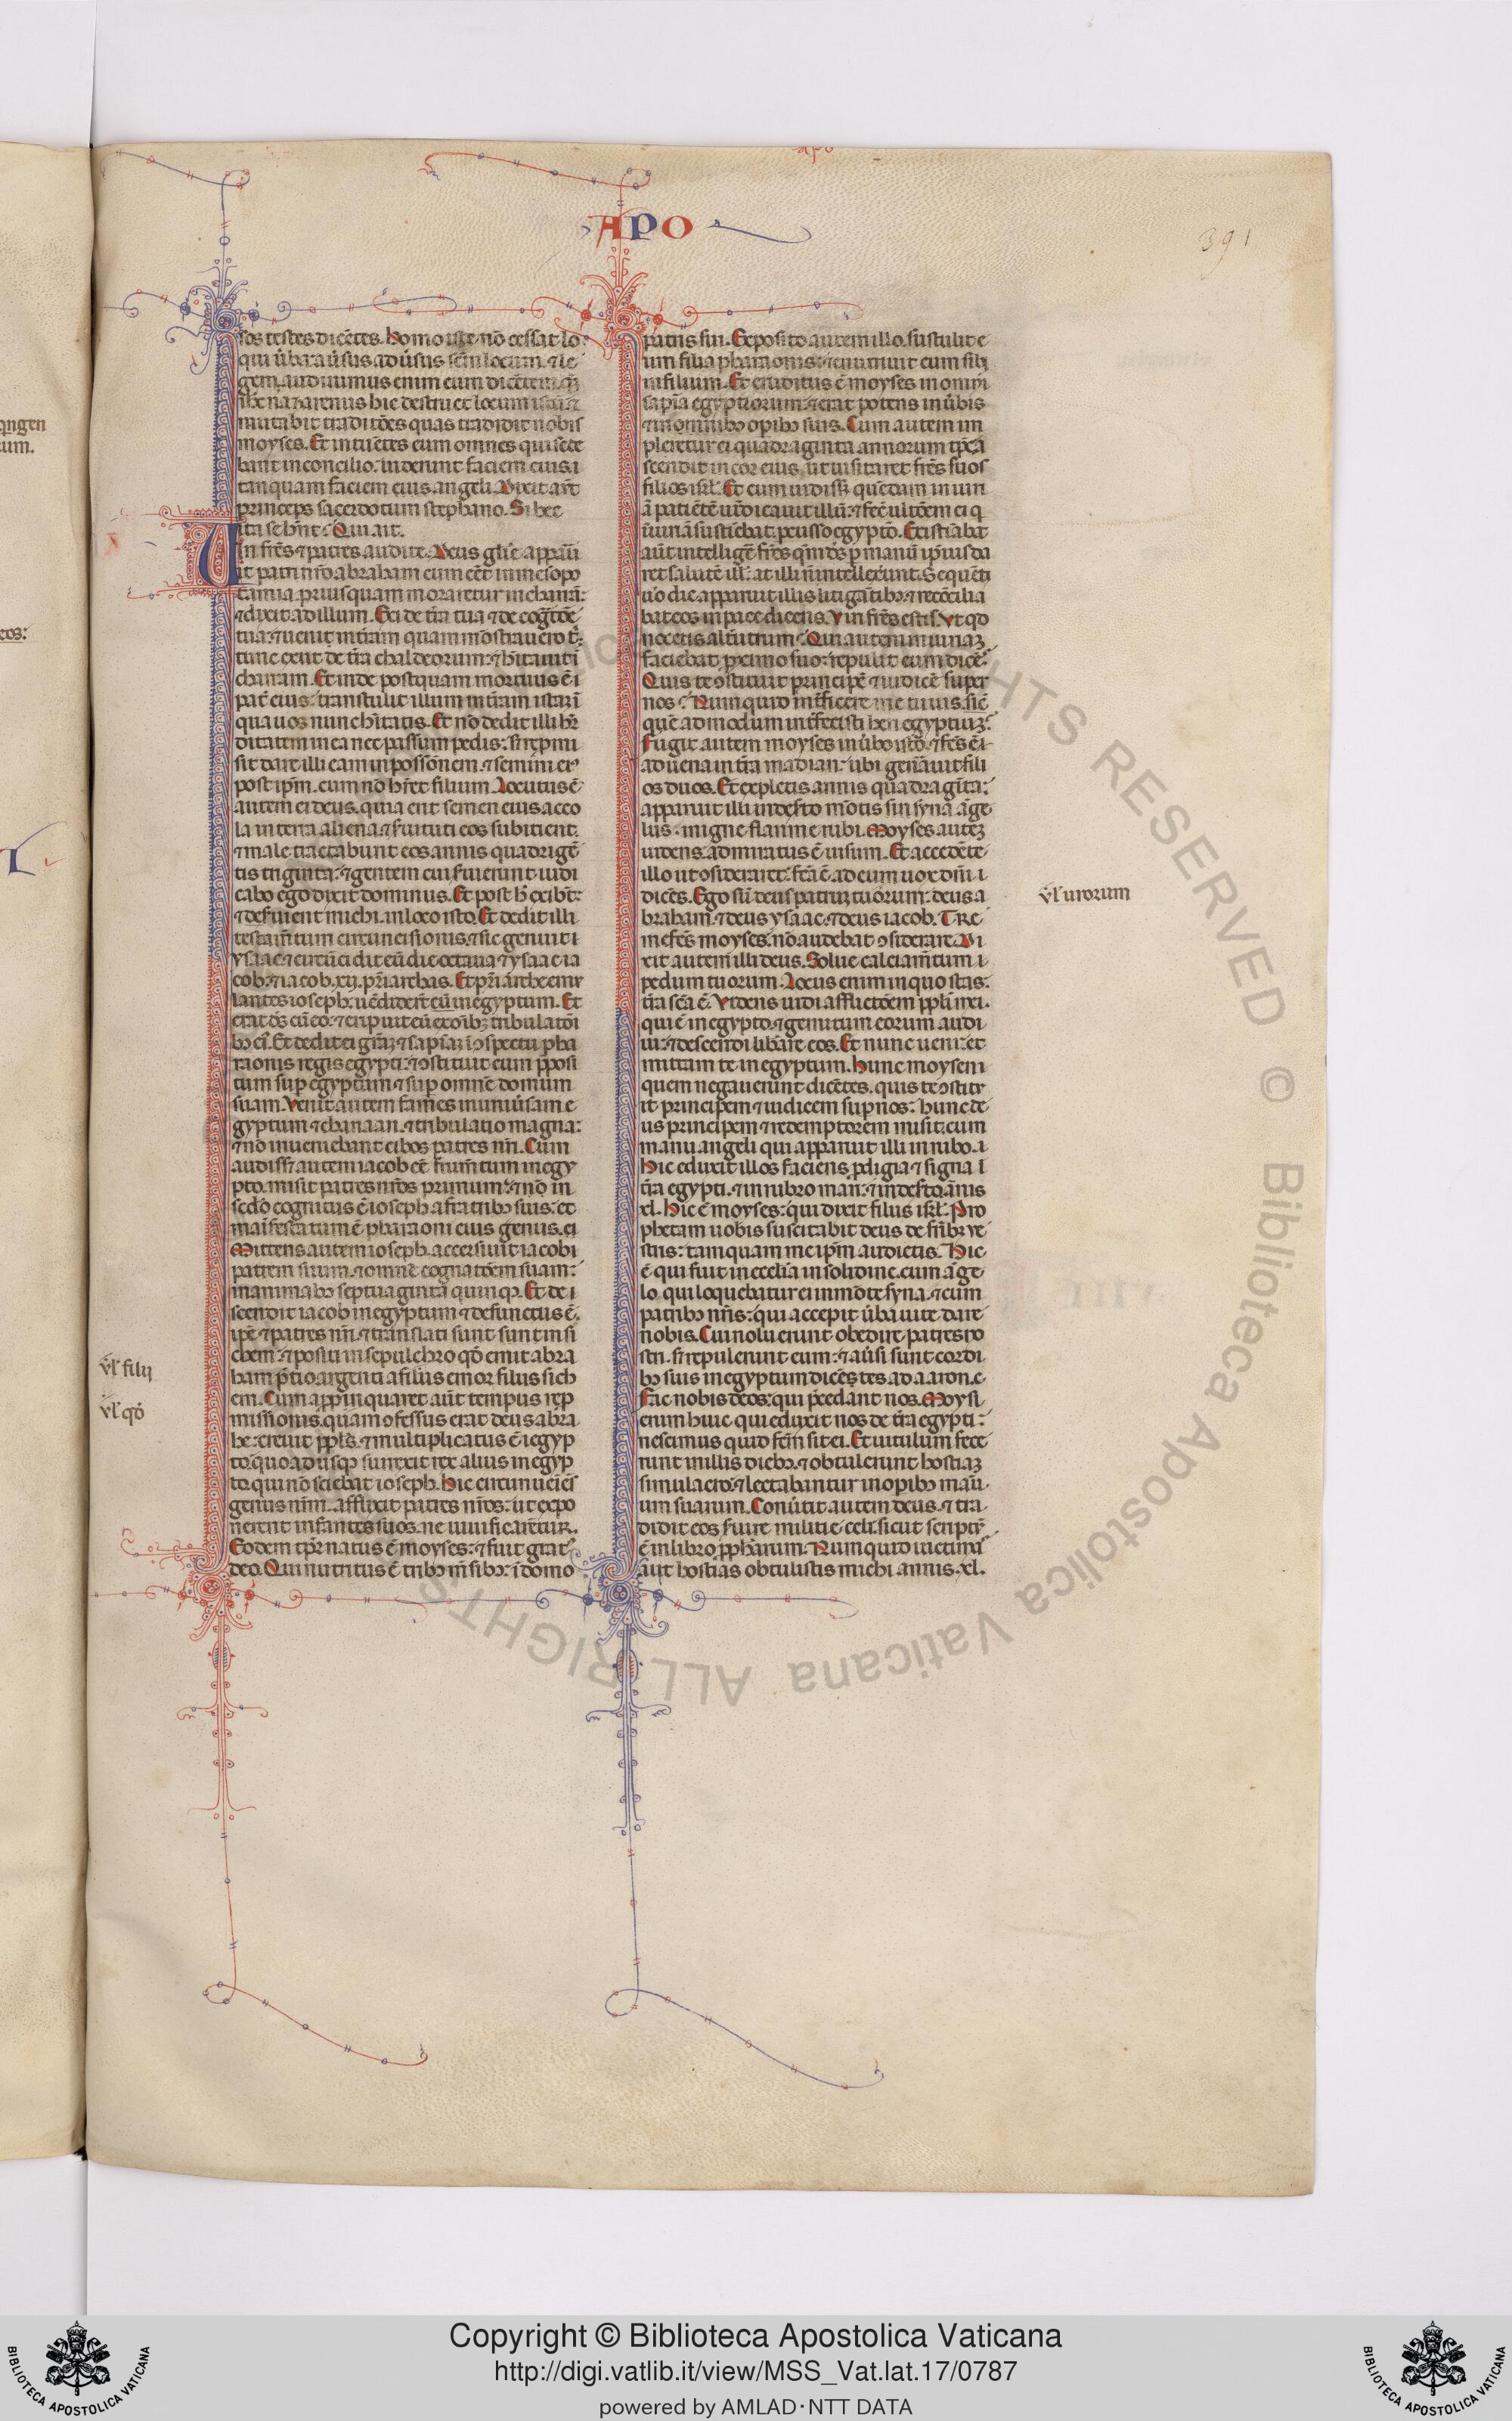 apo
APO
391
sos testes dicētes. Homo iste nō cessat lo
qui ūba aūsus adūsus scm̄ locum. ⁊ le
gem. audiuimus enim eum dicētem. qm̄
ihc̄ nazarenus hic destruet locum istū ⁊
mutabit traditōes quas tradidit nobis
moyses. Et intuētes eum omnes qui sede
bant in concilio: uiderunt faciem eius i
tanquam faciem eius angeli. Dixit aūt
princeps sacerdotum stephano. Si hec
ita se hn̄t? Qui ait.
Uiri fres ⁊ patres audite. Deus glīe apparū
it patri nr̄o abraham cum eēt in mesopo
tamia. priusquam moraretur in charrā:
⁊ dixit ad illum. Exi de tr̄a tua ⁊ de cogtōe
tua: ⁊ ueni in tr̄am quam mōstrauero t̄:
tunc exiit de tr̄a chaldeorum: ⁊ hītauit ī
charram. Et inde postquam mortuus ē i
pat̄ eius: transtulit illum in tr̄am istā ī
qua uos nunc hītatis. Et nō dedit illi hr̄
ditatem in ea nec passum pedis: s; repmi
sit dare illi eam in possōnem. ⁊ semini ei⁹
post ip̄m. cum nō hr̄et filium. Locutus ē
autem ei deus. quia erit semen eius acco
la in terra aliena ⁊ seruituti eos subicient.
⁊ male tractabunt eos annis quadrigē
tis triginta: ⁊ gentem cui seruierunt iudi
cabo ego dixit dominus. Et post h̄ exibt̄:
⁊ deseruient michi. in loco isto. Et dedit illi
testam̄tum circuncisionis. ⁊ sic genuit i
ysaac ⁊ circūcidit eū die octaua ⁊ ysaac ia
cob. ⁊ iacob. xij. pr̄iarchas. Et pr̄iarche emu
lantes ioseph: uēdider̄t eū in egyptum. Et
erat dc̄s cū eo: ⁊ eripuit eū ex oīb; tribulatōi
b; ei⁹. Et dedit ei gr̄az ⁊ sapīaz ī ꝯspectu pha
raonis regis egypti: ⁊ ꝯstituit eum pposi
tum sup egyptum ⁊ sup omnē domum
suam. Venit autem fames in uniūsam e
gyptum ⁊ chanaan. ⁊ tribulatio magna:
⁊ nō inueniebant cibos patres nr̄i. Cum
audiss; autem iacob eē frum̄tum in egy
pto. misit patres nr̄os primum: ⁊ nō in
sedō cognitus ē ioseph a fratrib; suis: et
maīfestatum ē pharaoni eius genus. ei
Mittens autem ioseph. accersiuit iacobi
patrem suum. ⁊ omnē cognatōem suam:
in animab; septuaginta quinq;. Et de i
scendit iacob in egyptum ⁊ defunctus ē.
ip̄e ⁊ patres nr̄i. ⁊ translati sunt sunt in si
chem: ⁊ positi in sepulchro qd̄ emit abra
ham p̄tio argenti a filius emor filus sich
em. Cum appinquaret aūt tempus rep
missionis. quam ꝯfessus erat deus abra
he: creuit ppls̄. ⁊ multiplicatus ē ī egyp
to. quo adusq; surrexit rex alius in egyp
to. qui nō sciebat ioseph. Hic circunueiēs
genus nr̄m. afflixit patres nr̄os: ut expo
nerent infantes suos. ne uiuificarētur.
Eodem tp̄r natus ē moyses: ⁊ fuit grat⁹
deo. Qui nutritus ē trib; m̄sib; ī domo
vl̄ filij
vl̄ qd̄
patris sui. Exposito autem illo. sustulit e
um filia pharaonis: ⁊ enutriuit eum sibi
in filium. Et eruditus ē moyses in omni
sapīa egyptiorum: ⁊ erat potens in ūbis
⁊ in omnib; opib; suis. Cum autem im
pleretur ei quadraginta annorum tp̄c a
scendit in cor eius. ut uisitaret fres suos
filios isrl̄. Et cum uidiss; quēdam iniuri
ā patiētē uīdicauit illū: ⁊ fec̄ ultōem ei q
iniuriā sustiebat. percusso egyptio. Existīabat
aūt intelligē fres qm̄ ds̄ p manū ip̄ius da
ret salutē ill: at illi n̄ intellexerunt. Sequēti
uo die apparuit illis litigātib; ⁊ recōcilia
bat eos in pace dicens. Viri fres estis. Vt qd
nocetis altrutrum? Qui autem iniuriaz
faciebat proximo suo: repulit eum dicē.
Quis te ꝯstituit principē ⁊ iudicē super
nos? Numquid int̄ficere me tu uis. sic̄
quē admodum int̄fecisti heri egyptiuz?
Fugit autem moyses in ūbo isto. ⁊ fcs̄ ē i
aduena in tr̄a madian: ubi genrauit fili
os duos. Et expletis annis quadraginta:
apparuit illi in deserto mōtis sin syna āge
lus: in igne flamme rubi. Moyses autez
uidens. admiratus ē uisum. Et accedēte
illo ut ꝯsideraret: fcā ē ad eum uox dn̄i i
dicēs. Ego sū deus patruz tuorum: deus a
braham. ⁊ deus ysaac. ⁊ deus iacob. Tre
mefcs̄ moyses. nō audebat ꝯsiderare. Di
xit autem illi deus. Solue calciam̄tum i
pedum tuorum. Locus enim in quo stas:
tr̄a scā ē. Videns uidi afflictōem ppli mei.
qui ē in egypto. ⁊ gemitum eorum audi
ui: ⁊ descendi libare eos. Et nunc ueni: et
mittam te in egyptum. Hunc moysem
quem negauerunt dicētes. quis te ꝯstitu
it principem ⁊ iudicem sup nos: hunc de
us principem ⁊ redemptorem misit. cum
manu angeli qui apparuit illi in rubo. i
Hic eduxit illos faciens pdigia ⁊ signa ī
tr̄a egypti. ⁊ in rubro mari: ⁊ in deserto ānis
xl. Hic ē moyses: qui dixit filus isrl̄. Pro
phetam uobis suscitabit deus de frib; ve
stris: tamquam me ip̄m audietis. Hic
ē qui fuit in ecclīa in solidine. cum āge
lo. qui loquebatur ei in mōte syna. ⁊ cum
patrib; nr̄is: qui accepit ūba uite dare
nobis. Cui noluerunt obedire patres vo
stri. s; repulerunt eum: ⁊ aūsi sunt cordi
b; suis in egyptum dicētes ad aaron. e
Fac nobis deos: qui p̄cedant nos. Moysi
enim huic qui eduxit nos de tr̄a egypti:
nescimus quid fcm̄ sit ei. Et uitulum fece
runt in illis dieb;. ⁊ obtulerunt hostiaz
simulacro: ⁊ letabantur in opib; manu
um suarum. Conūtit autem deus. ⁊ tra
didit eos seruire militie celi. sicut scriptū
ē in libro ppharum. Numquid uictimas
aut hostias obtulistis michi annis. xl.
vl̄ uirorum
qngen
um.
eos:
Copyright © Biblioteca Apostolica Vaticana
http://digi.vatlib.it/view/MSS_Vat.lat.17/0787
powered by AMLAD·NTT DATA
BIBLIOTECA APOSTOLICA VATICANA
BIBLIOTECA APOSTOLICA VATICANA
© Biblioteca Apostolica Vaticana ALL RIGHTS RESERVED